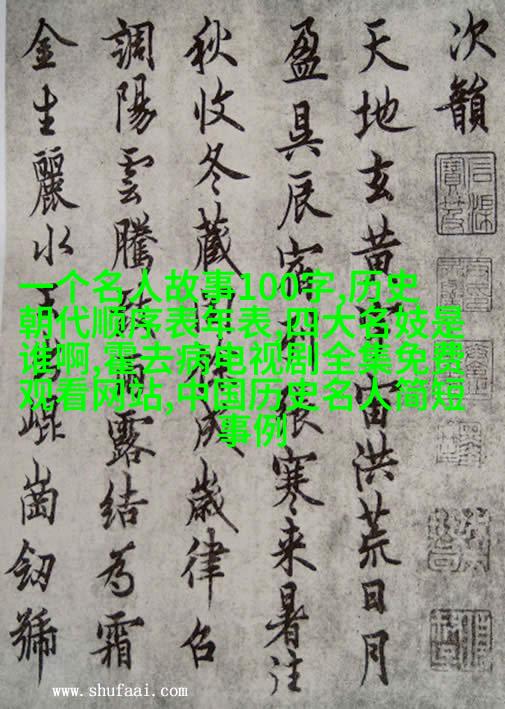 次韻
天地玄黄宙洪荒日月
盈昃辰宿列張寒来暑往
秋收冬藏成歲律召
調陽雲騰露結為霜
金生麗水崐崗劒號
一个名人故事100字,历史
朝代顺序表年表,四大名妓是
谁啊,霍去病电视剧全集免费
观看网站,中国历史名人简短
事例
www.shufaai.com